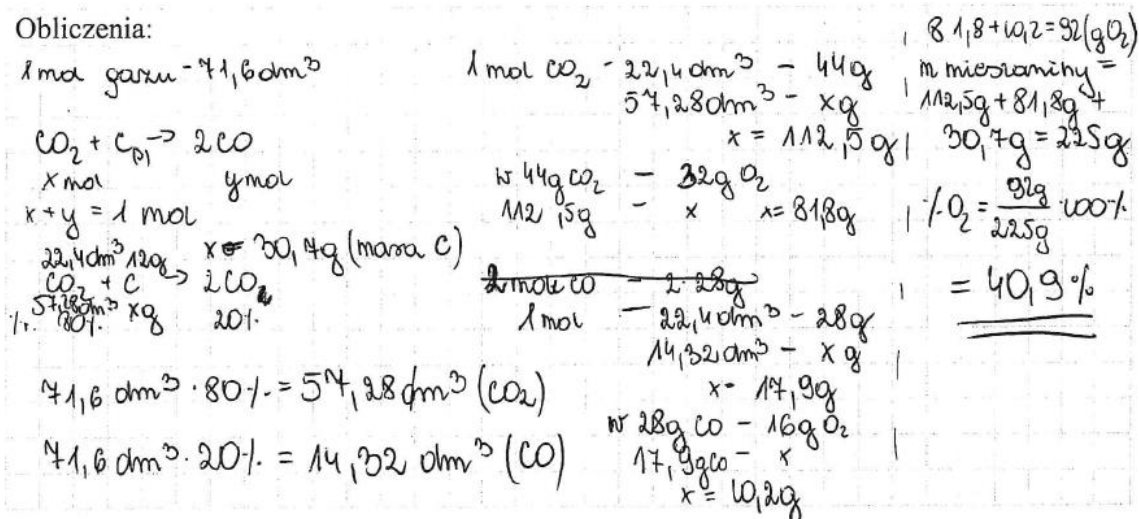 Obliczenia:
1 mol gazu - 71,6 dm³
CO₂ + C₍ₛ₎ → 2 CO
x mol y mol
x + y = 1 mol
22,4 dm³ 12g x = 30,7g (masa C)
CO₂ + C → 2 CO
57,28dm³ xg
%. 80% 20%
71,6 dm³ · 80% = 57,28 dm³ (CO₂)
71,6 dm³ · 20% = 14,32 dm³ (CO)
1 mol CO₂ - 22,4 dm³ - 44g
57,28dm³ - xg
x = 112,5g
w 44g CO₂ - 32g O₂
112,5g - x x = 81,8g
2 mole CO - 2·28g
1 mol - 22,4dm³ - 28g
14,32dm³ - xg
x = 17,9g
w 28g CO - 16g O₂
17,9g CO - x
x = 10,2g
81,8 + 10,2 = 92 (gO₂)
m mieszaniny =
112,5g + 81,8g +
30,7g = 225g
% O₂ = 92g / 225g · 100%
= 40,9%